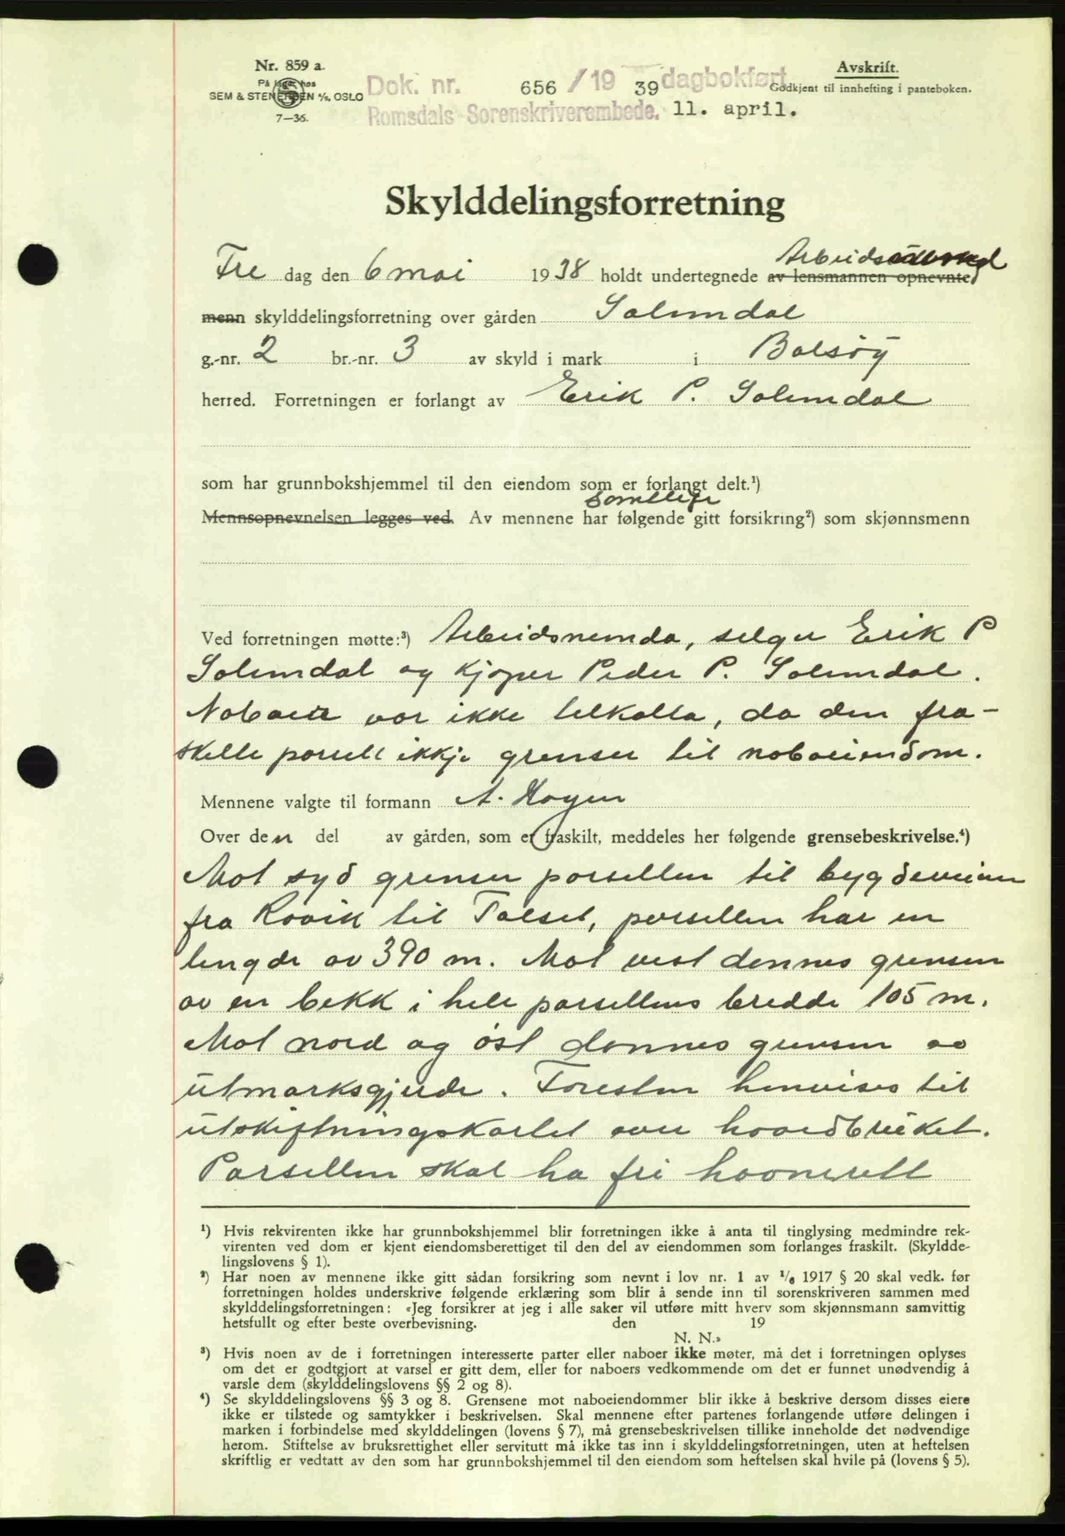 Nr. 859 a.
På lager hos
SEM & STENERSEN A/S, OSLO
7—36.
Dok. nr. 656 / 19 39 dagbokført
Romsdals Sorenskriverembede. 11. april.
Avskrift.
Godkjent til innhefting i panteboken.
Skylddelingsforretning
Fre dag den 6 mai 1938 holdt undertegnede av lensmannen opnevnte
menn skylddelingsforretning over gården Solemdal
g.-nr. 2 br.-nr. 3 av skyld i mark i Bolsøy
herred. Forretningen er forlangt av Erik P. Solemdal
som har grunnbokshjemmel til den eiendom som er forlangt delt.¹)
samtlige
Mennsopnevnelsen legges ved. Av mennene har følgende gitt forsikring²) som skjønnsmenn
Ved forretningen møtte:³) Arbeidsnemda, selger Erik P
Solemdal og kjøper Peder P. Solemdal.
Naboer var ikke tilkalla, da den fra-
skilte parsell ikkje grenser til naboeiendom.
Mennene valgte til formann A. Hagen
Over den del av gården, som er fraskilt, meddeles her følgende grensebeskrivelse.⁴)
Mot syd grenser parsellen til bygdeveien
fra Røvik til Talset, parsellen har en
lengde av 390 m. Mot vest dannes grensen
av en bekk i hele parsellens bredde 105 m.
Mot nord og øst dannes grensen av
utmarksgjerde. Foresten henvises til
utskiftningskartet over hovedbruket.
Parsellen skal ha fri havnerett
¹) Hvis rekvirenten ikke har grunnbokshjemmel blir forretningen ikke å anta til tinglysing medmindre rek-
virenten ved dom er kjent eiendomsberettiget til den del av eiendommen som forlanges fraskilt. (Skyldde-
lingslovens § 1).
²) Har noen av mennene ikke gitt sådan forsikring som nevnt i lov nr. 1 av ¹/₆ 1917 § 20 skal vedk. før
forretningen holdes underskrive følgende erklæring som blir å sende inn til sorenskriveren sammen med
skylddelingsforretningen: «Jeg forsikrer at jeg i alle saker vil utføre mitt hverv som skjønnsmann samvittig
hetsfullt og efter beste overbevisning. den 19
N. N.»
³) Hvis noen av de i forretningen interesserte parter eller naboer ikke møter, må det i forretningen oplyses
om det er godtgjort at varsel er gitt dem, eller for naboers vedkommende om det er funnet unødvendig å
varsle dem (skylddelingslovens §§ 2 og 8).
⁴) Se skylddelingslovens §§ 3 og 8. Grensene mot naboeiendommer blir ikke å beskrive dersom disses eiere
ikke er tilstede og samtykker i beskrivelsen. Skal mennene efter partenes forlangende utføre delingen i
marken i forbindelse med skylddelingen (lovens § 7), må grensebeskrivelsen tillike inneholde det nødvendige
herom. Stiftelse av bruksrettighet eller servitutt må ikke tas inn i skylddelingsforretningen, uten at heftelsen
skriftlig er vedtatt av den som har grunnbokshjemmel til den eiendom som heftelsen skal hvile på (lovens § 5).